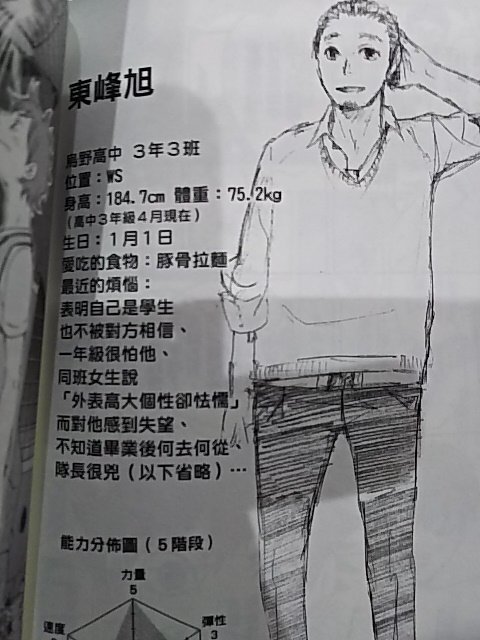 東峰旭
烏野高中 3年3班
位置：WS
身高：184.7cm 體重：75.2kg
（高中3年級4月現在）
生日：1月1日
愛吃的食物：豚骨拉麵
最近的煩惱：
表明自己是學生
也不被對方相信、
一年級很怕他、
同班女生說
「外表高大個性卻怯懦」
而對他感到失望、
不知道畢業後何去何從、
隊長很兇（以下省略）…
能力分佈圖（5階段）
力量
5
速度
彈性
3